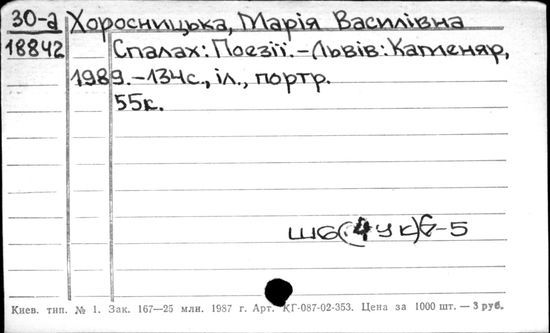 30-а Хоросницька, Марія Василівна
18842 Спалах: Поезії. – Львів: Каменяр,
1989. – 134с., іл., портр.
55к.
Ш6(4УК)6-5
Киев. тип. № 1. Зак. 167—25 млн. 1987 г. Арт. КГ-087-02-353. Цена за 1000 шт. — 3 руб.